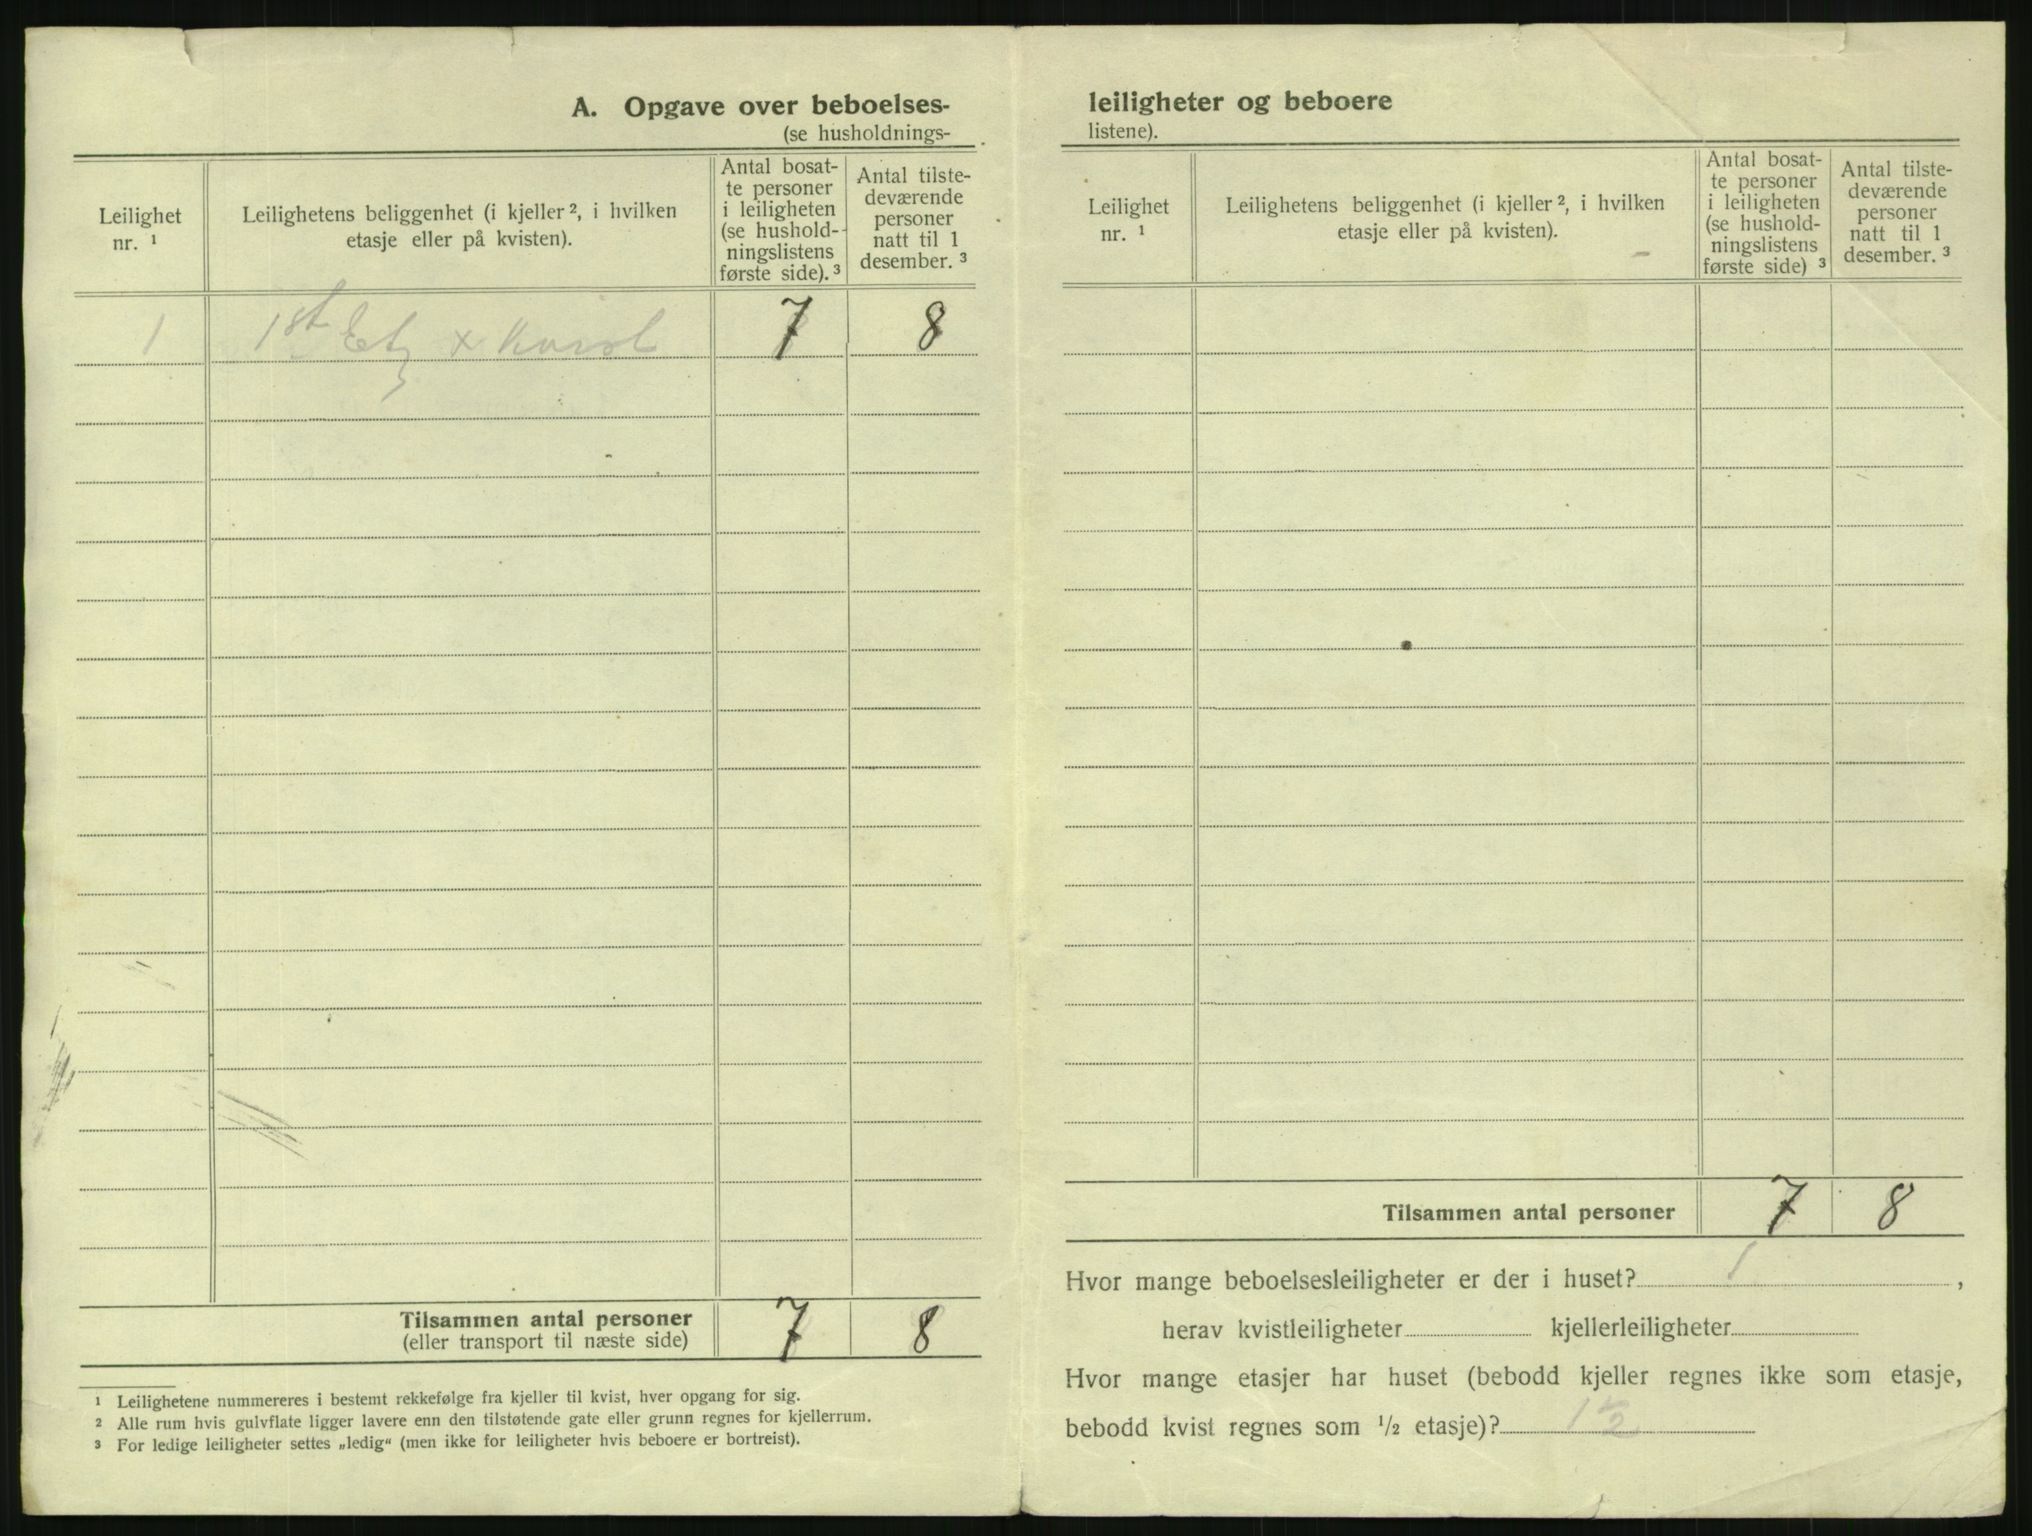 A. Opgave over beboelses-
(se husholdnings-
Leilighet
nr. ¹
Leilighetens beliggenhet (i kjeller ², i hvilken
etasje eller på kvisten).
Antal bosat-
te personer
i leiligheten
(se hushold-
ningslistens
første side). ³
Antal tilste-
deværende
personer
natt til 1
desember. ³
1 1st Etg x Kvist 7 8
Tilsammen antal personer 7 8
(eller transport til næste side)
¹ Leilighetene nummereres i bestemt rekkefølge fra kjeller til kvist, hver opgang for sig.
² Alle rum hvis gulvflate ligger lavere enn den tilstøtende gate eller grunn regnes for kjellerrum.
³ For ledige leiligheter settes „ledig“ (men ikke for leiligheter hvis beboere er bortreist).
leiligheter og beboere
listene).
Leilighet
nr. ¹
Leilighetens beliggenhet (i kjeller ², i hvilken
etasje eller på kvisten).
Antal bosat-
te personer
i leiligheten
(se hushold-
ningslistens
første side) ³
Antal tilste-
deværende
personer
natt til 1
desember. ³
Tilsammen antal personer 7 8
Hvor mange beboelsesleiligheter er der i huset? 1 ,
herav kvistleiligheter kjellerleiligheter
Hvor mange etasjer har huset (bebodd kjeller regnes ikke som etasje,
bebodd kvist regnes som ½ etasje)? 1½